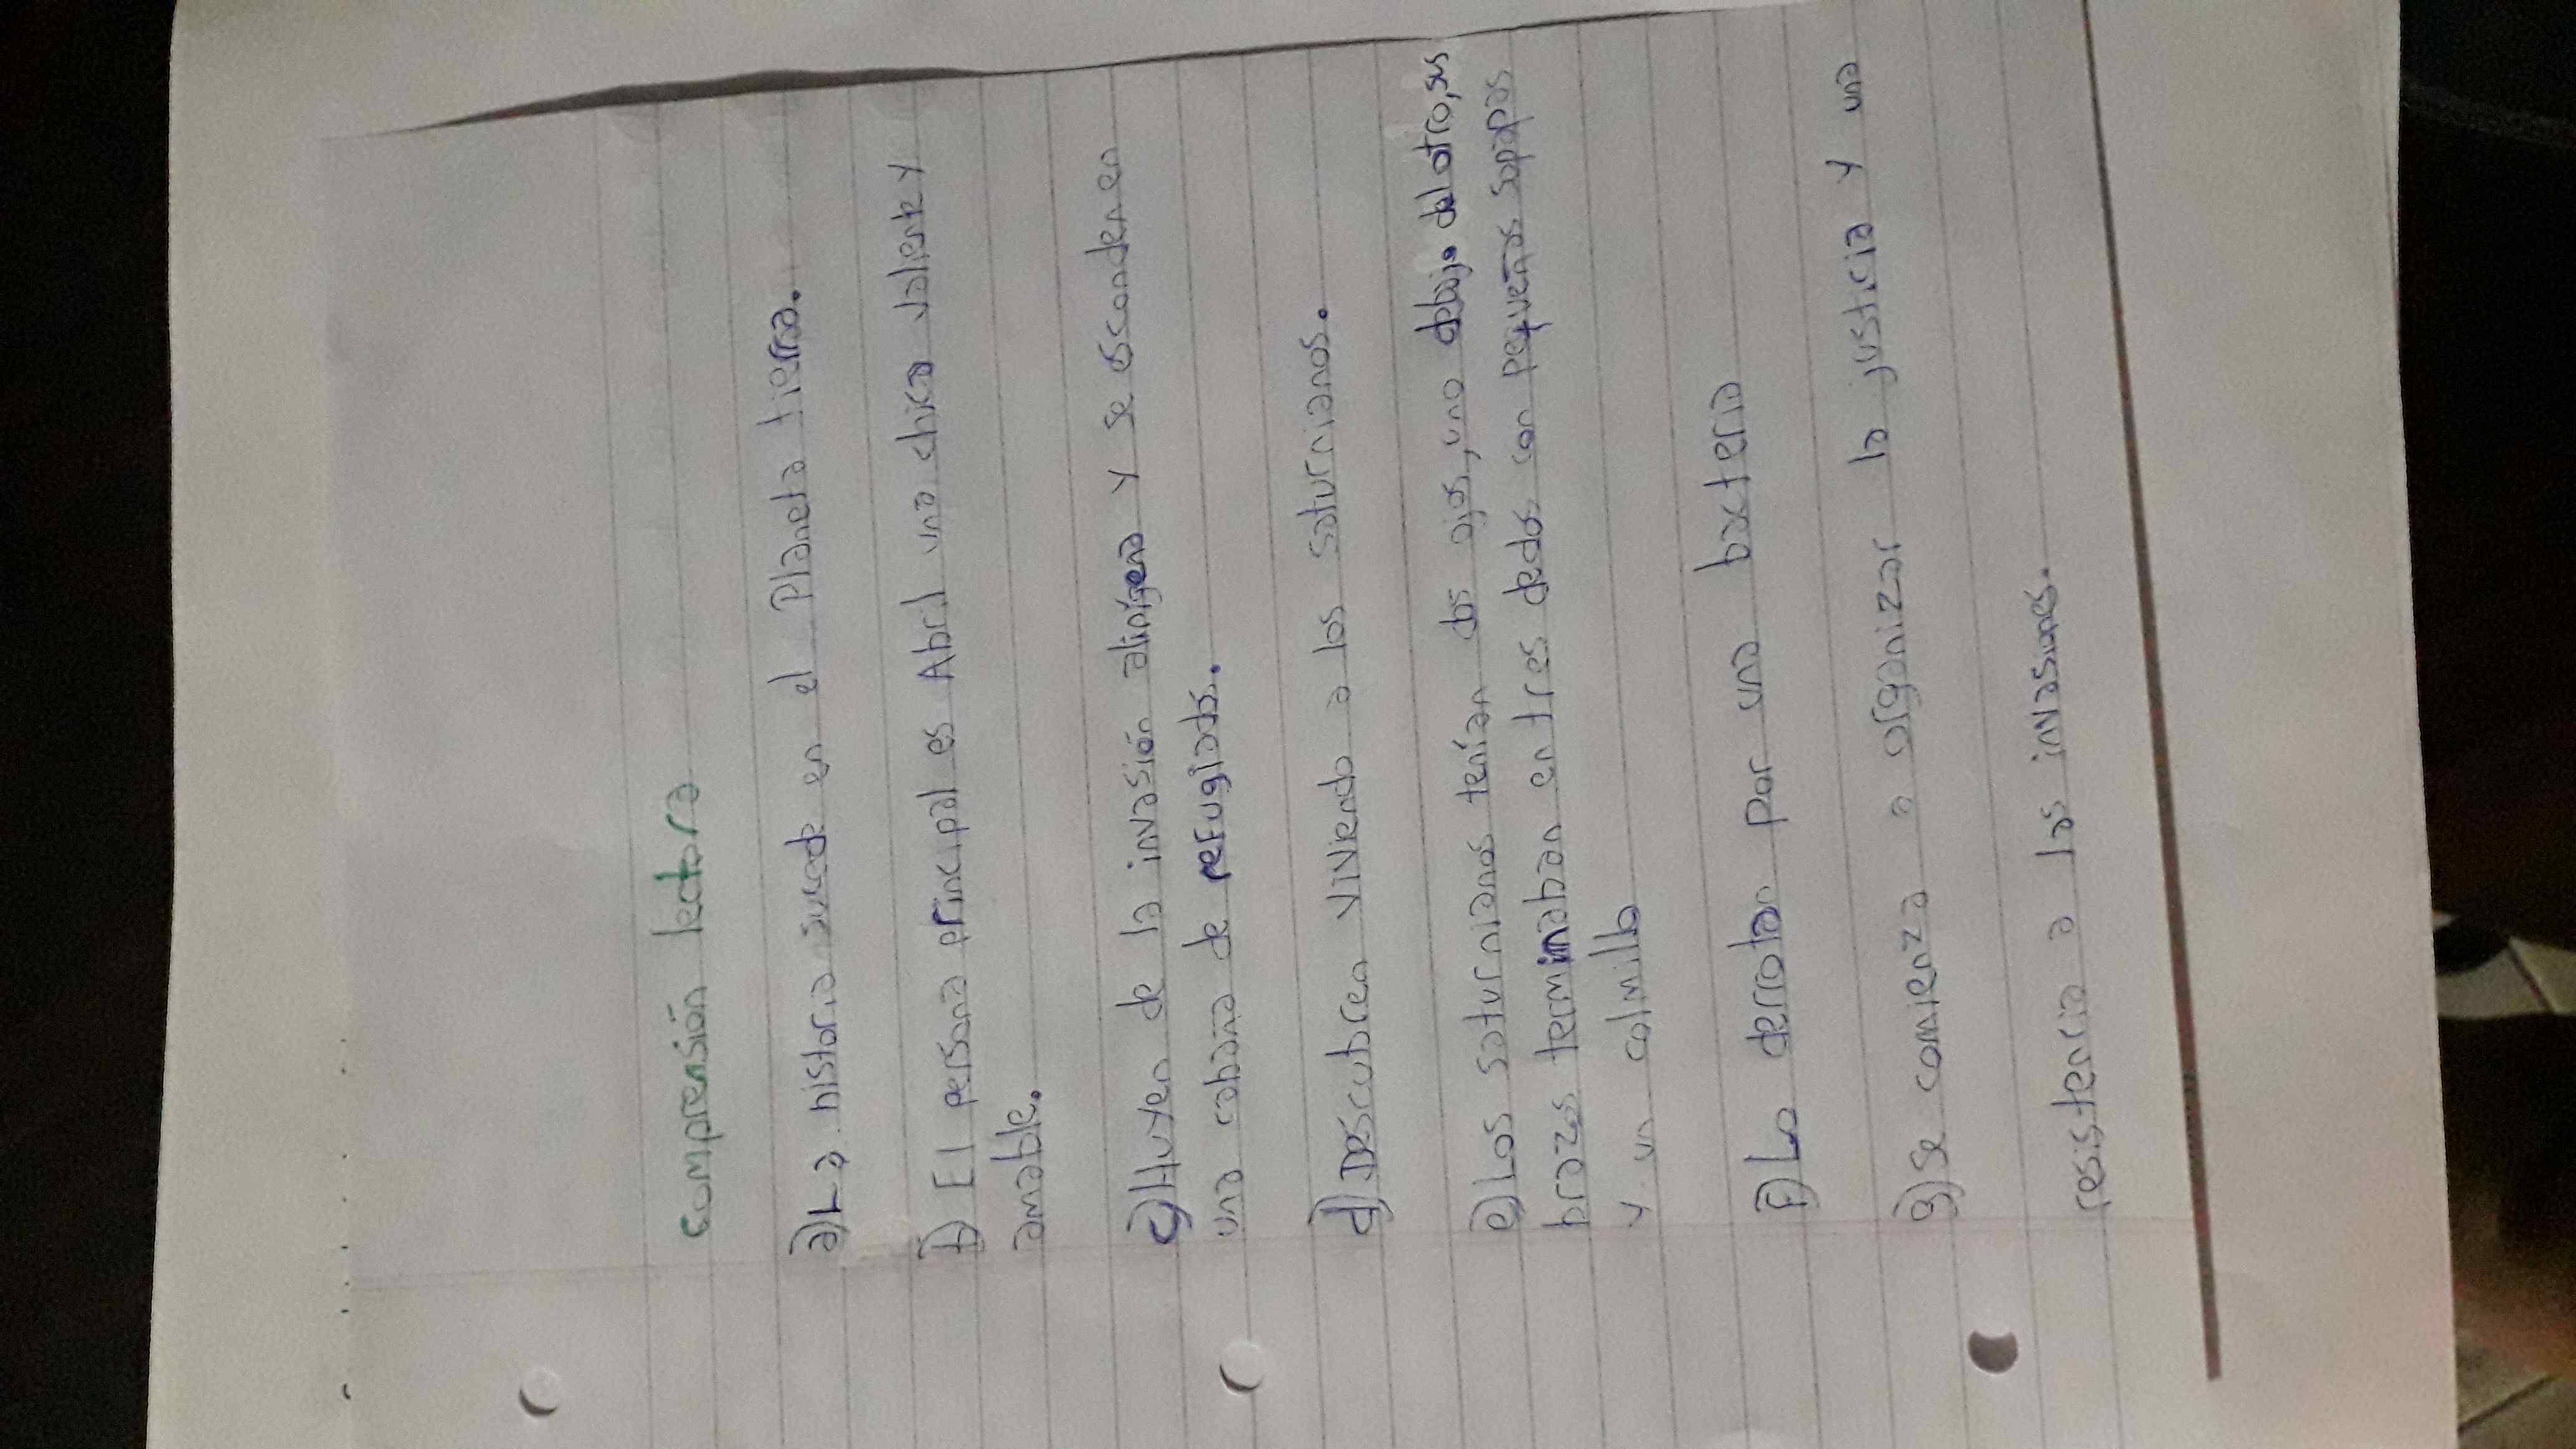 comprensión lectora
a) La historia sucede en el Planeta tierra.
b) El persona principal es Abril una chica valiente y
amable.
c) Huyen de la invasión alinígena y se esconden en
una cabaña de refugiados.
d) Descubren viviendo a los saturnianos.
e) Los saturnianos tenían dos ojos, uno debajo del otro, sus
brazos terminaban en tres dedos con pequeñas sopapas
y un colmillo
f) Lo derrotan por una bacteria
g) Se comienza a organizar la justicia y una
resistencia a las invasiones.